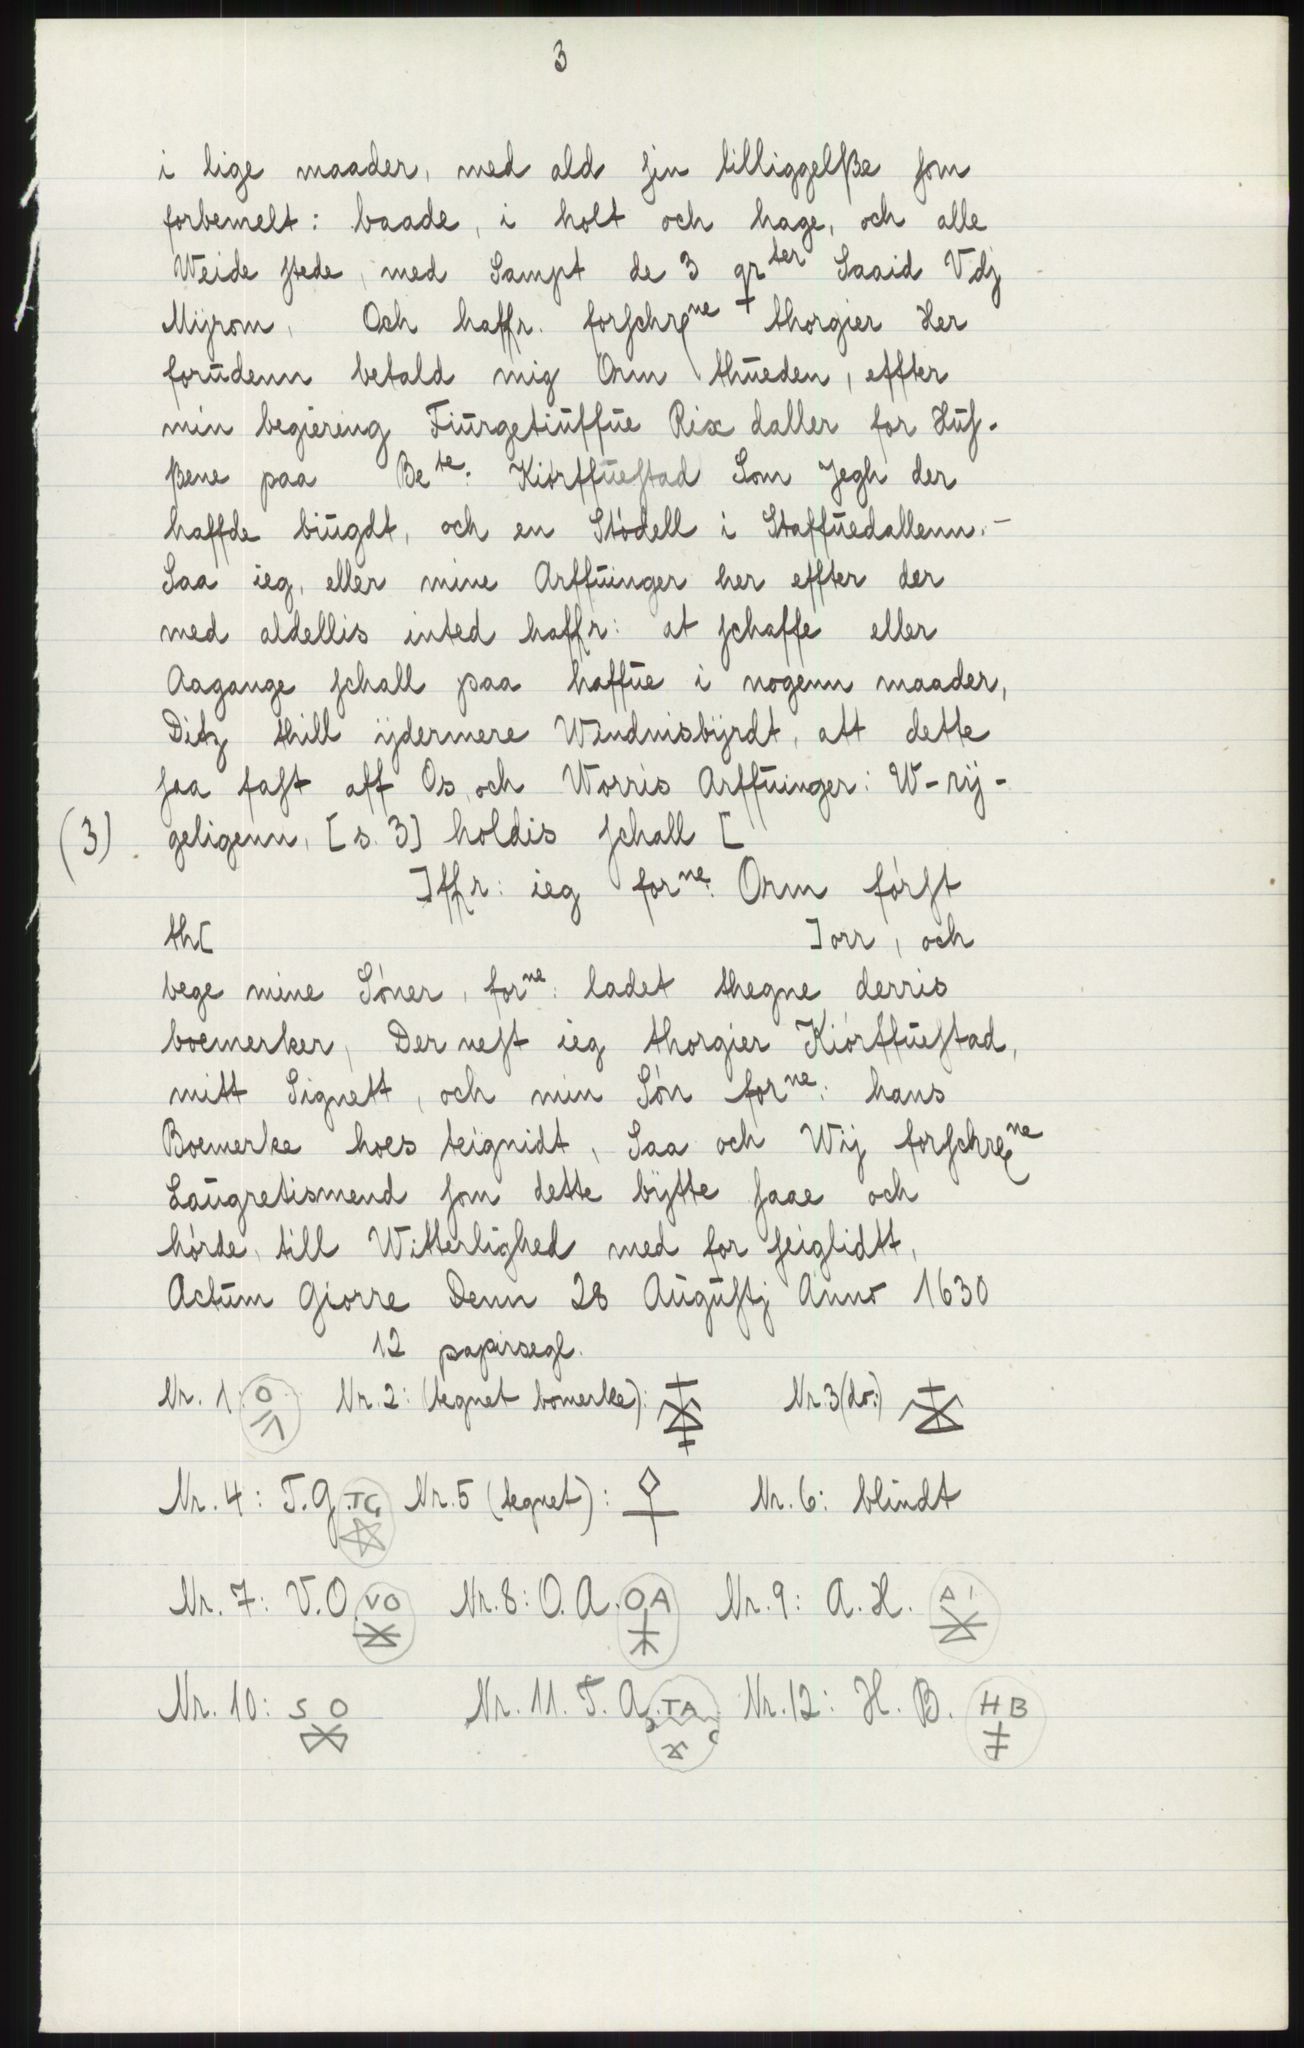 3
i lige maader, med ald sin tilliggelße som
forbemelt: baade, i holt och hage, och alle
Weide stede, med Sampt de 3 qrter Saaid Vdj
Mijrom, Och haffr. forschrne thorgier Her
forudenn betald mig Orm thueden, effter
min begiering Fiurgetiuffue Rix daller for Hus-
ßene paa Bete: Kiórffuestad Som Jegh der
haffde biugdt, och en Stódell i Staffuedallenn.-
Saa ieg, eller mine Arffuinger her effter der
med aldellis inted haffr: at schaffe eller
Aagange schall paa haffue i nogenn maader,
Ditz thill ijdermere Windnisbÿrdt, att dette
saa fast aff Os, och Worris Arffuinger: W-rij-
(3) geligenn, [s. 3] holdis schall [
]ffr: ieg forne: Orm först
th[ ]orr, och
bege mine Sóner, forne: ladet thegne derris
boemerker, Der nest ieg thorgier Kiórffuestad,
mitt Signett, och min Són forne: hans
Boemerke hoes teignidt, Saa och Wij forschrene
Laugretismend som dette bÿtte saae och
hórde, till Witterlighed med for seiglidtt,
Actum Giorre Denn 28 Augustj Anno 1630
12 papirsegl.
Nr. 1: O Nr. 2: (tegnet bomerke): Nr. 3 (do:)
Nr. 4: T. G. TG Nr. 5 (tegnet): Nr. 6: blindt
Nr. 7: V. O. VO Nr. 8: O. A. OA Nr. 9: A. H.
Nr. 10: S O Nr. 11. T. A. TA Nr. 12: H. B. HB